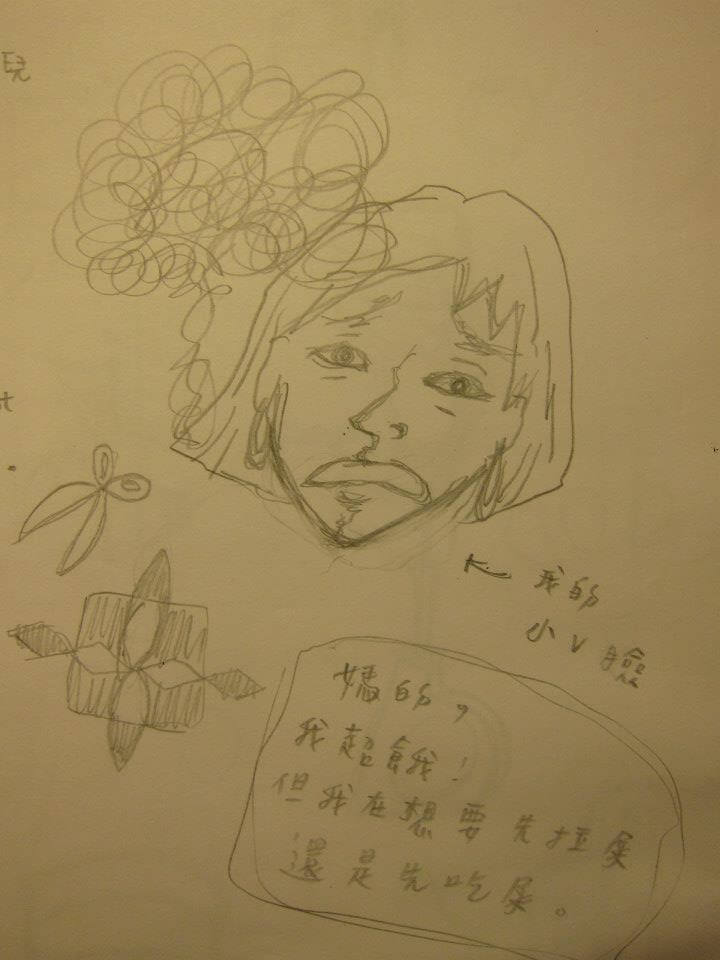 我的
小V臉
媽的，
我超餓！
但我在想要先拉屎
還是先吃屎。